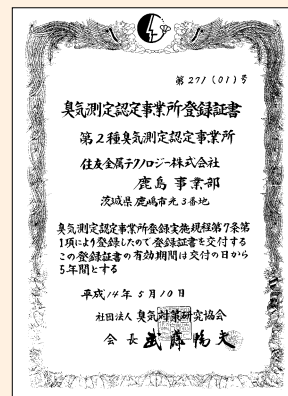 第271(01)号
臭気測定認定事業所登録証書
第2種臭気測定認定事業所
住友金属テクノロジー株式会社
鹿島事業部
茨城県鹿嶋市光3番地
臭気測定認定事業所登録実施規程第7条第
1項により登録したので登録証書を交付する
この登録証書の有効期間は交付の日から
5年間とする
平成14年5月10日
社団法人 臭気対策研究協会
会長 武藤暢夫